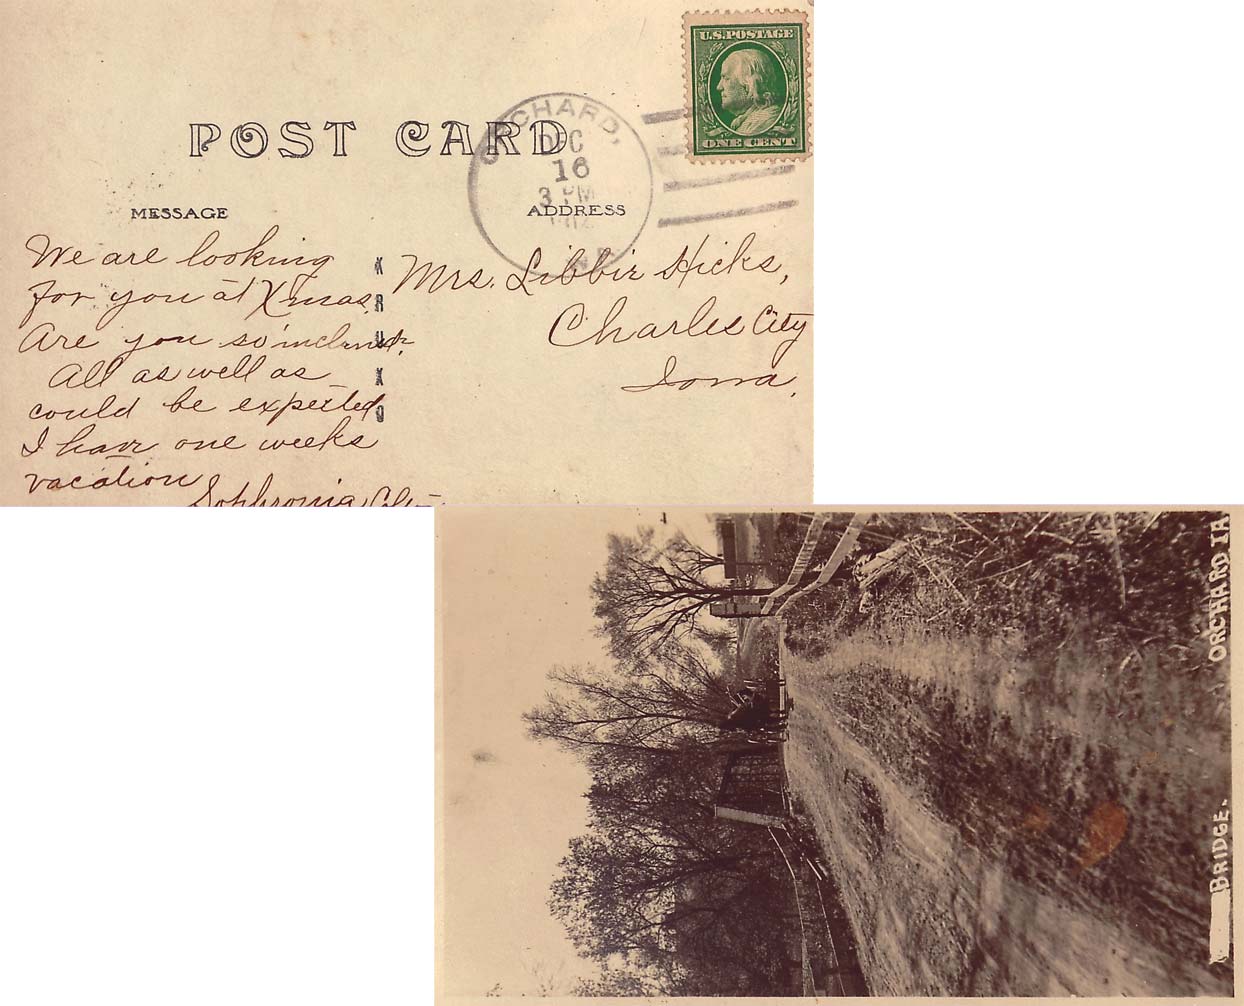 U.S.POSTAGE
ONE CENT
POST CARD
ORCHARD,
DEC
16
3 PM
MESSAGE
ADDRESS
We are looking
for you at Xmas.
Are you so inclined.
All as well as
could be expected
I have one weeks
vacation
Sophronia
KRUXO
Mrs. Libbie Hicks,
Charles City
Iowa.
BRIDGE. ORCHARD IA